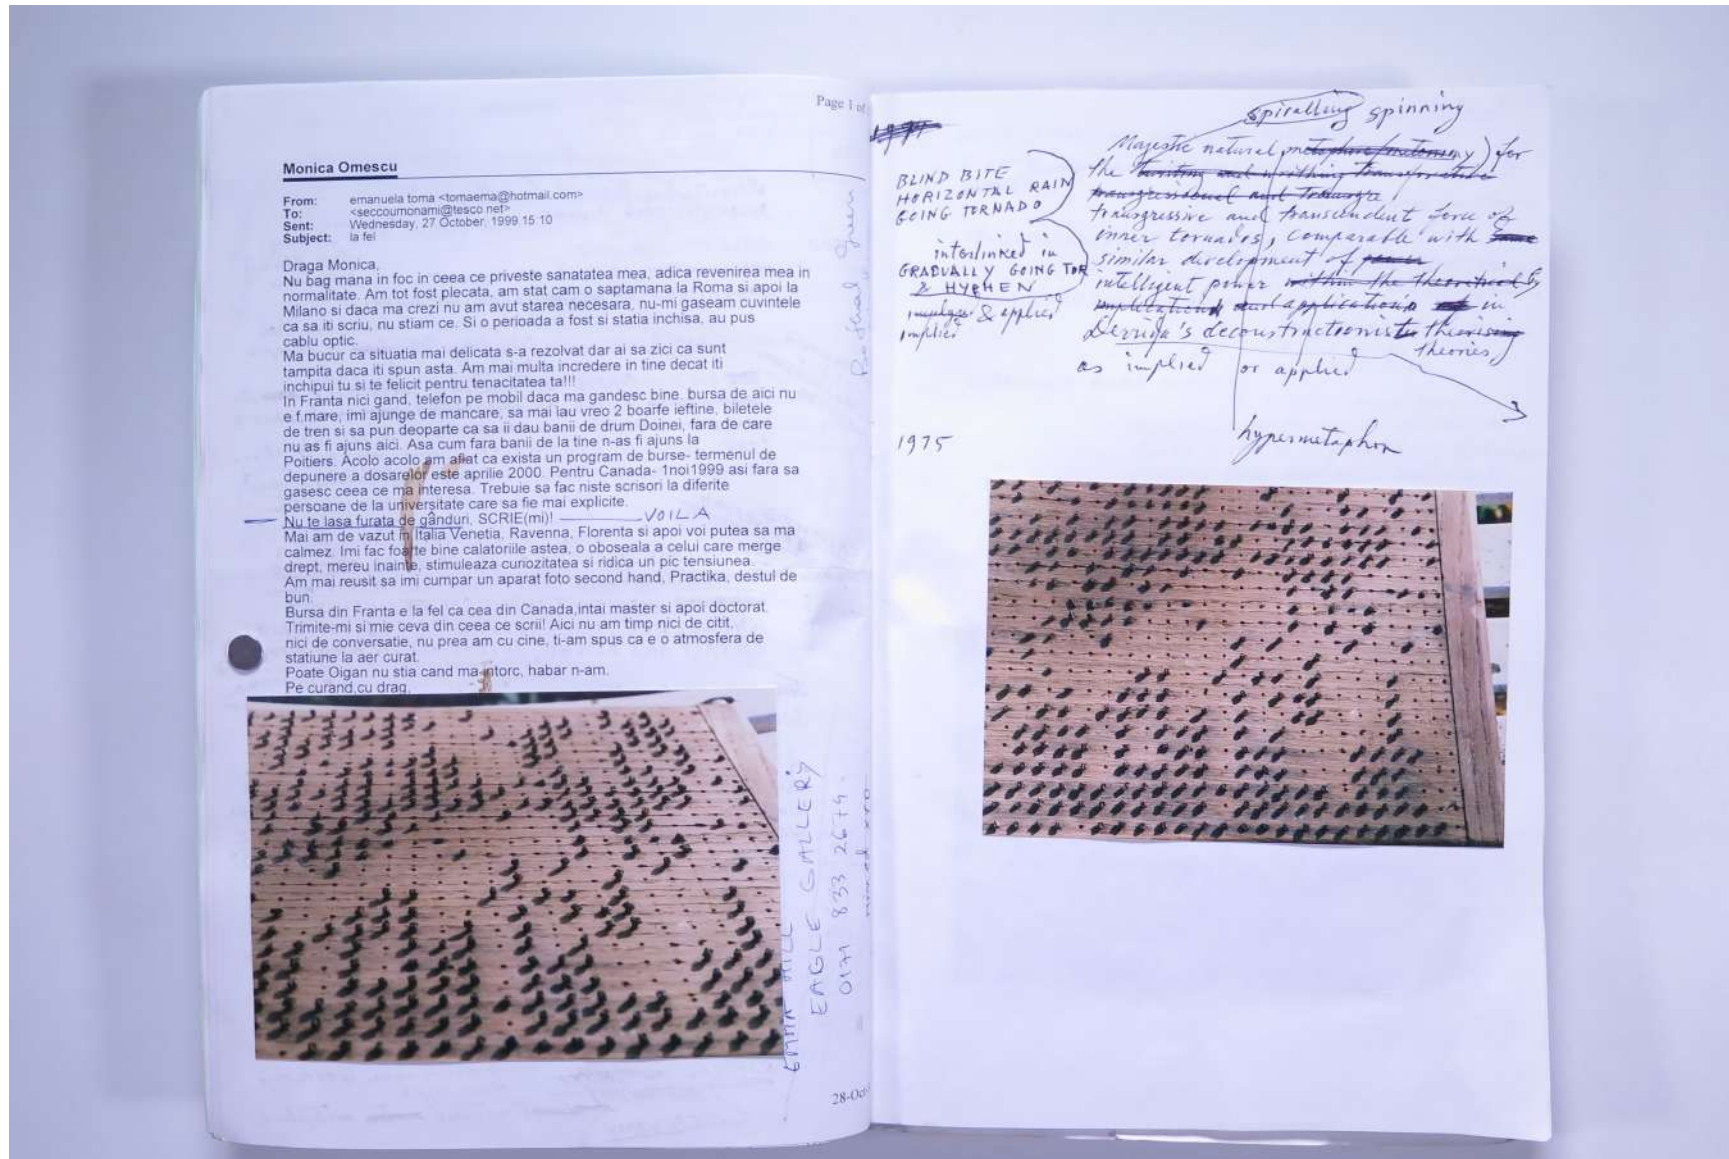 Page 1 of
Monica Omescu
From: emanuela toma <tomaema@hotmail.com>
To: <seccoumonami@tesco.net>
Sent: Wednesday, 27 October, 1999 15:10
Subject: la fel
Draga Monica,
Nu bag mana in foc in ceea ce priveste sanatatea mea, adica revenirea mea in
normalitate. Am tot fost plecata, am stat cam o saptamana la Roma si apoi la
Milano si daca ma crezi nu am avut starea necesara, nu-mi gaseam cuvintele
ca sa iti scriu, nu stiam ce. Si o perioada a fost si statia inchisa, au pus
cablu optic.
Ma bucur ca situatia mai delicata s-a rezolvat dar ai sa zici ca sunt
tampita daca iti spun asta. Am mai multa incredere in tine decat iti
inchipui tu si te felicit pentru tenacitatea ta!!!
In Franta nici gand, telefon pe mobil daca ma gandesc bine. bursa de aici nu
e f.mare, imi ajunge de mancare, sa mai iau vreo 2 boarfe ieftine, biletele
de tren si sa pun deoparte ca sa ii dau banii de drum Doinei, fara de care
nu as fi ajuns aici. Asa cum fara banii de la tine n-as fi ajuns la
Poitiers. Acolo acolo am aflat ca exista un program de burse- termenul de
depunere a dosarelor este aprilie 2000. Pentru Canada- 1noi1999 asi fara sa
gasesc ceea ce ma interesa. Trebuie sa fac niste scrisori la diferite
persoane de la universitate care sa fie mai explicite.
Nu te lasa furata de gânduri, SCRIE(mi)! VOILA
Mai am de vazut in Italia Venetia, Ravenna, Florenta si apoi voi putea sa ma
calmez. Imi fac foarte bine calatoriile astea, o oboseala a celui care merge
drept, mereu inainte, stimuleaza curiozitatea si ridica un pic tensiunea.
Am mai reusit sa imi cumpar un aparat foto second hand, Practika, destul de
bun.
Bursa din Franta e la fel ca cea din Canada,intai master si apoi doctorat.
Trimite-mi si mie ceva din ceea ce scrii! Aici nu am timp nici de citit,
nici de conversatie, nu prea am cu cine, ti-am spus ca e o atmosfera de
statiune la aer curat.
Poate Oigan nu stia cand ma intorc, habar n-am.
Pe curand,cu drag,
EMMA HILL
EAGLE GALLERY
0171 833 2674
28-Oct
spiralling spinning
Majestic natural metaphore/metonomy) for
the twisting and writhing transformative
transgressional and
transgressive and transcendent force of
inner tornados, comparable with same
similar development of power
intelligent power within the theoretical by
implications and applications in
Derrida's deconstructionist theorising
theories
as implied or applied
hypermetaphor
BLIND BITE
HORIZONTAL RAIN
GOING TORNADO
interlinked in
GRADUALLY GOING TOR
& HYPHEN
& applied
implied
1975